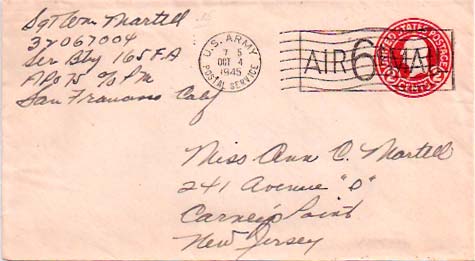 Sgt Wm. Martell
32067004
Ser Bty 165 F A
APO 75 % P M
San Francisco Calif
U.S. ARMY
7 5
OCT 4
1945
POSTAL SERVICE
AIR 6¢ MAIL
UNITED STATES POSTAGE
2 CENTS 2
Miss Ann C. Martell
241 Avenue "D"
Carney's Point
New Jersey